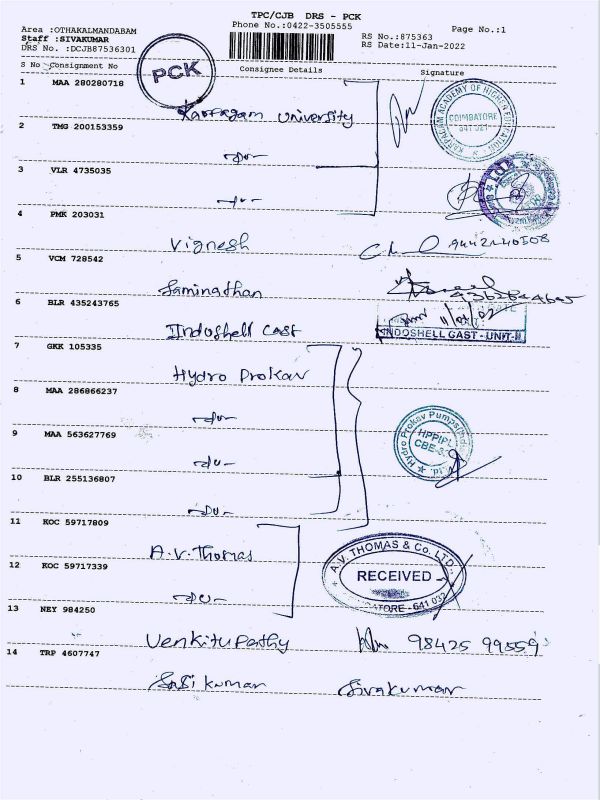 TPC/CJB DRS - PCK
Phone No.:0422-3505555
Page No.:1
Area :OTHAKALMANDABAM
Staff :SIVAKUMAR
DRS No. :DCJB87536301
RS No.:875363
RS Date:11-Jan-2022
PCK
S No Consignment No Consignee Details Signature
1 MAA 280280718
Karpagam University
KARPAGAM ACADEMY OF HIGHER EDUCATION
COIMBATORE
641 021
2 TMG 200153359
-do-
3 VLR 4735035
-do-
4 PMK 203031
Vignesh
5 VCM 728542
Saminathan
6 BLR 435243765
Indoshell Cast
INDOSHELL CAST - UNIT-II
7 GKK 105335
Hydro Prokav
8 MAA 286866237
-do-
Hydro Prokav Pumps
HPPIPL
9 MAA 563627769
-do-
10 BLR 255136807
-do-
11 KOC 59717809
A.V. Thomas
A.V. THOMAS & Co. LTD.,
RECEIVED
12 KOC 59717339
-do-
13 NEY 984250
Venkitupathy 98425 99559
14 TRP 4607747
Sasi kumar Sivakumar